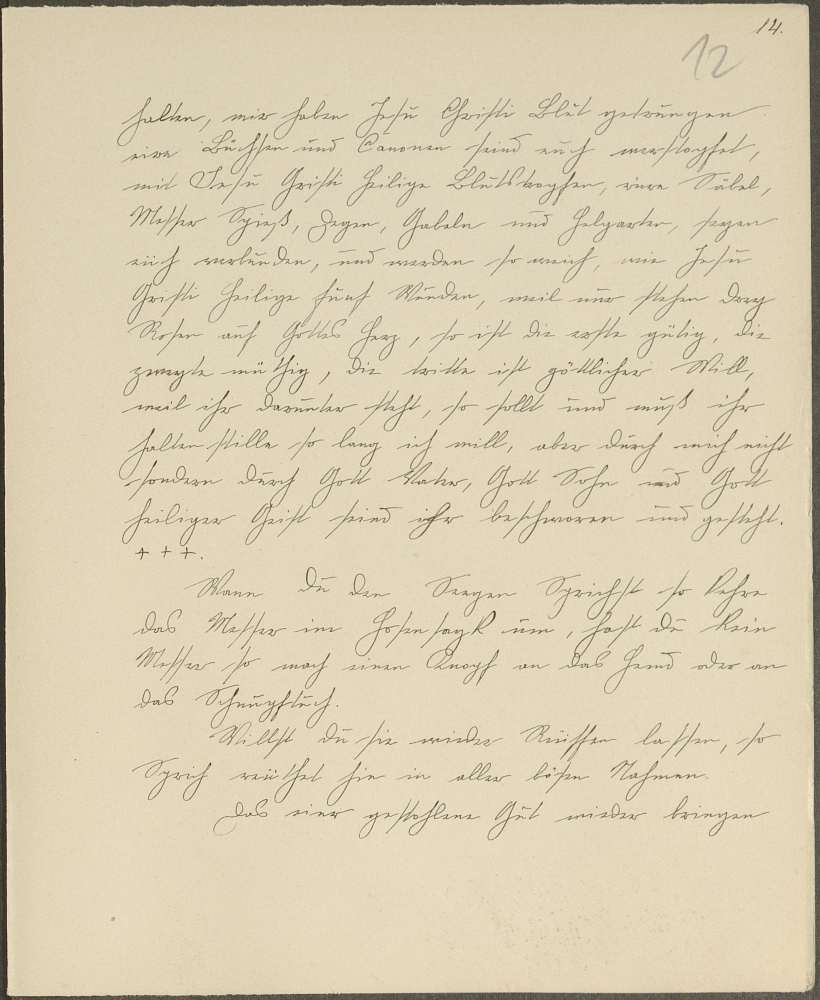 14.
12
halten, wir haben Jesu Christi Blut getrungen
eire Büchsen und Canonen seind euch verstopfet,
mit Jesu Gristi heilige Blutstropfen, eure Säbel,
Messer Spieß, Degen, Gabeln und Helparten, segen
eüch verbunden, und werden so weich, wie Jesu
Gristi heilige fünf Wunden, weil nur stehen drey
Rosen auf Gottes Herz, so ist die erste gütig, die
zweyte müthig, die tritte ist göttlicher Will,
weil ihr darunter steht, so sollt und muß ihr
halten stille so lang ich will, aber durch mich nicht
sondern durch Gott Vater, Gott Sohn und Gott
heiliger Geist seind ihr beschworen und gesteht.
+ + +.
Wann du den Seegen Sprichst so kehre
das Messer im Hosensagk um, hast du kein
Messer so mach einen Knopf an das Hemd oder an
das Schnupftuch.
Willst du sie wieder Reüssen lassen, so
Sprich reüthet hin in aller bösen Nahmen.
Das eier gestohlene Gut wieder bringen